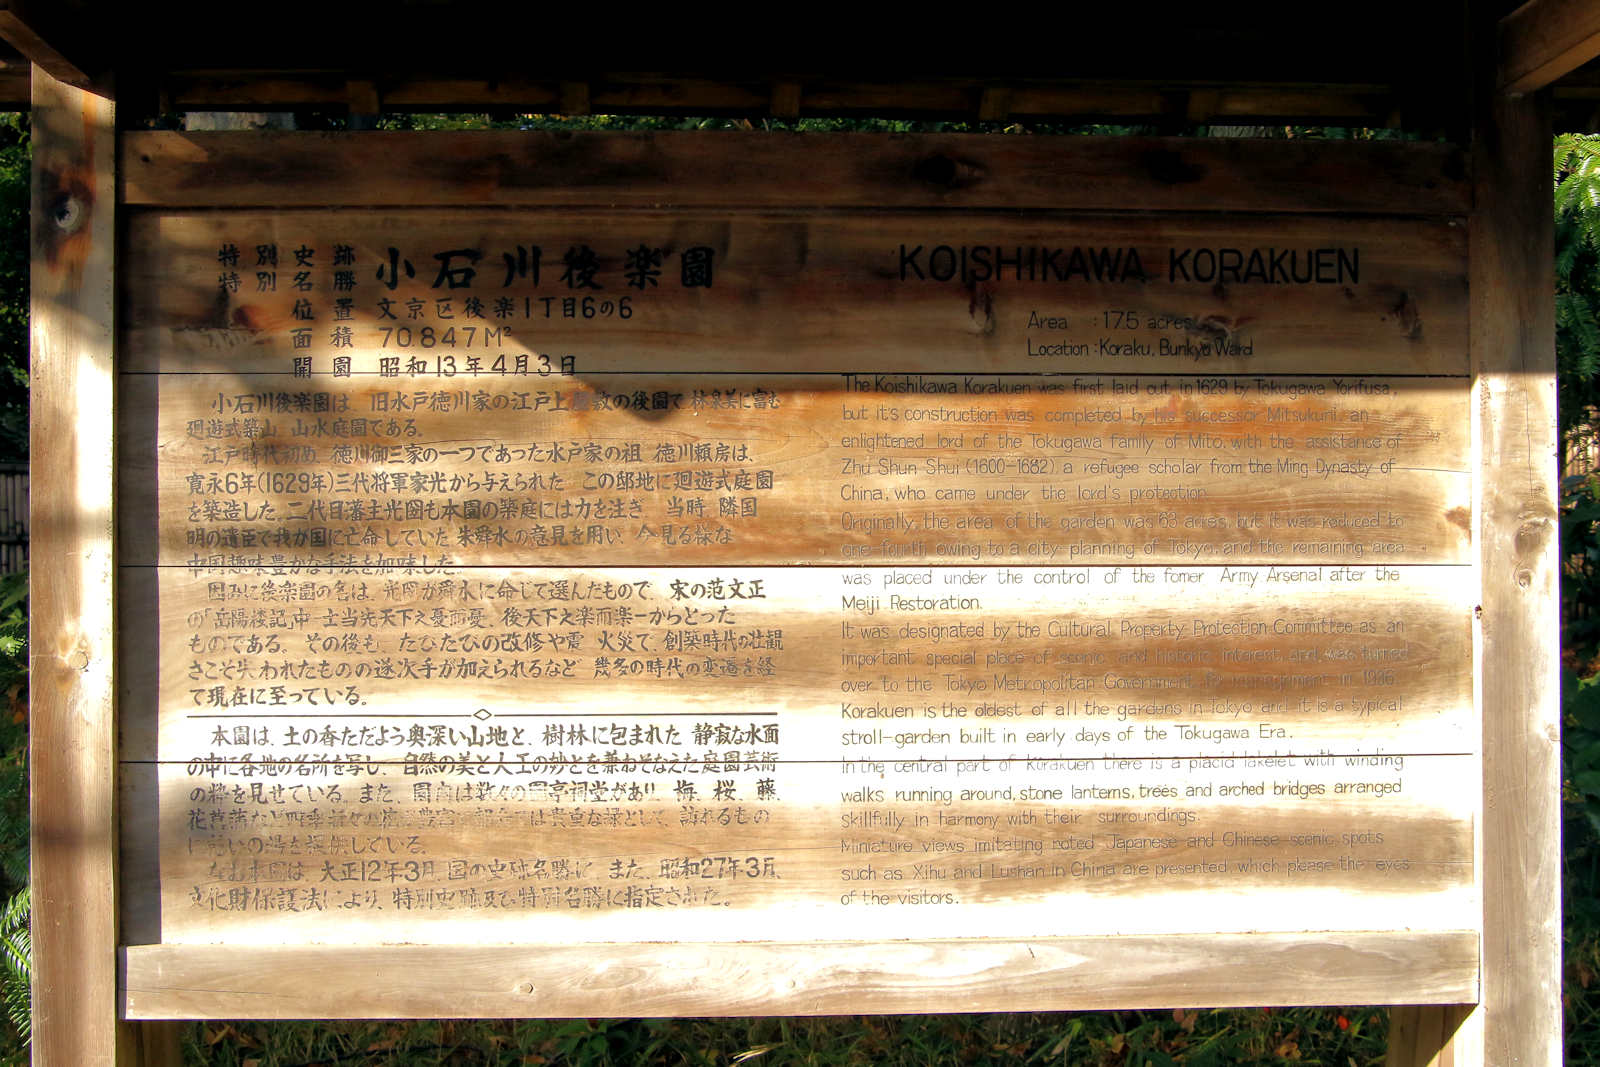 特別史跡
特別名勝
小石川後楽園
位置 文京区後楽1丁目6の6
面積 70.847M²
開園 昭和13年4月3日
小石川後楽園は、旧水戸徳川家の江戸上屋敷の後園で、林泉美に富む
廻遊式築山、山水庭園である。
江戸時代初め、徳川御三家の一つであった水戸家の祖、徳川頼房は、
寛永6年(1629年)三代将軍家光から与えられた、この邸地に廻遊式庭園
を築造した。二代目藩主光圀も本園の築庭には力を注ぎ、当時、隣国
明の遺臣で我が国に亡命していた朱舜水の意見を用い、今見る様な
中国趣味豊かな手法を加味した。
因みに後楽園の名は、光圀が舜水に命じて選んだもので、宋の范文正
の「岳陽楼記」中一士当先天下之憂而憂、後天下之楽而楽ーからとった
ものである。その後も、たびたびの改修や震、火災で、創築時代の壮観
さこそ失われたものの遂次手が加えられるなど、幾多の時代の変遷を経
て現在に至っている。
本園は、土の香ただよう奥深い山地と、樹林に包まれた静寂な水面
の中に各地の名所を写し、自然の美と人工の妙とを兼ねそなえた庭園芸術
の粋を見せている。また、園内は数々の園亭祠堂があり、梅、桜、藤、
花菖蒲など四季は貴重な緑として、訪れるもの
に憩いの場を提供している。
なお本園は、大正12年3月、国の史跡名勝に、また、昭和27年3月、
文化財保護法により、特別史跡及び特別名勝に指定された。
KOISHIKAWA KORAKUEN
Area :17.5 acres
Location :Koraku, Bunkyo Ward
The Koishikawa Korakuen was first laid out in 1629 by Tokugawa Yorifusa,
but it's construction was completed by his successor Mitsukuni, an
enlightened lord of the Tokugawa family of Mito, with the assistance of
Zhu Shun Shui (1600-1682), a refugee scholar from the Ming Dynasty of
China, who came under the lord's protection.
Originally, the area of the garden was 63 acres, but it was reduced to
one-fourth owing to a city planning of Tokyo, and the remaining area
was placed under the control of the fomer Army Arsenal after the
Meiji Restoration.
It was designated by the Cultural Property Protection Committee as an
important special place of scenic and historic interest, and was turned
over to the Tokyo Metropolitan Government for management in 1936.
Korakuen is the oldest of all the gardens in Tokyo and it is a typical
stroll-garden built in early days of the Tokugawa Era.
In the central part of Korakuen there is a placid lakelet with winding
walks running around, stone lanterns, trees and arched bridges arranged
skillfully in harmony with their surroundings.
Miniature views imitating noted Japanese and Chinese scenic spots
such as Xihu and Lushan in China are presented, which please the eyes
of the visitors.